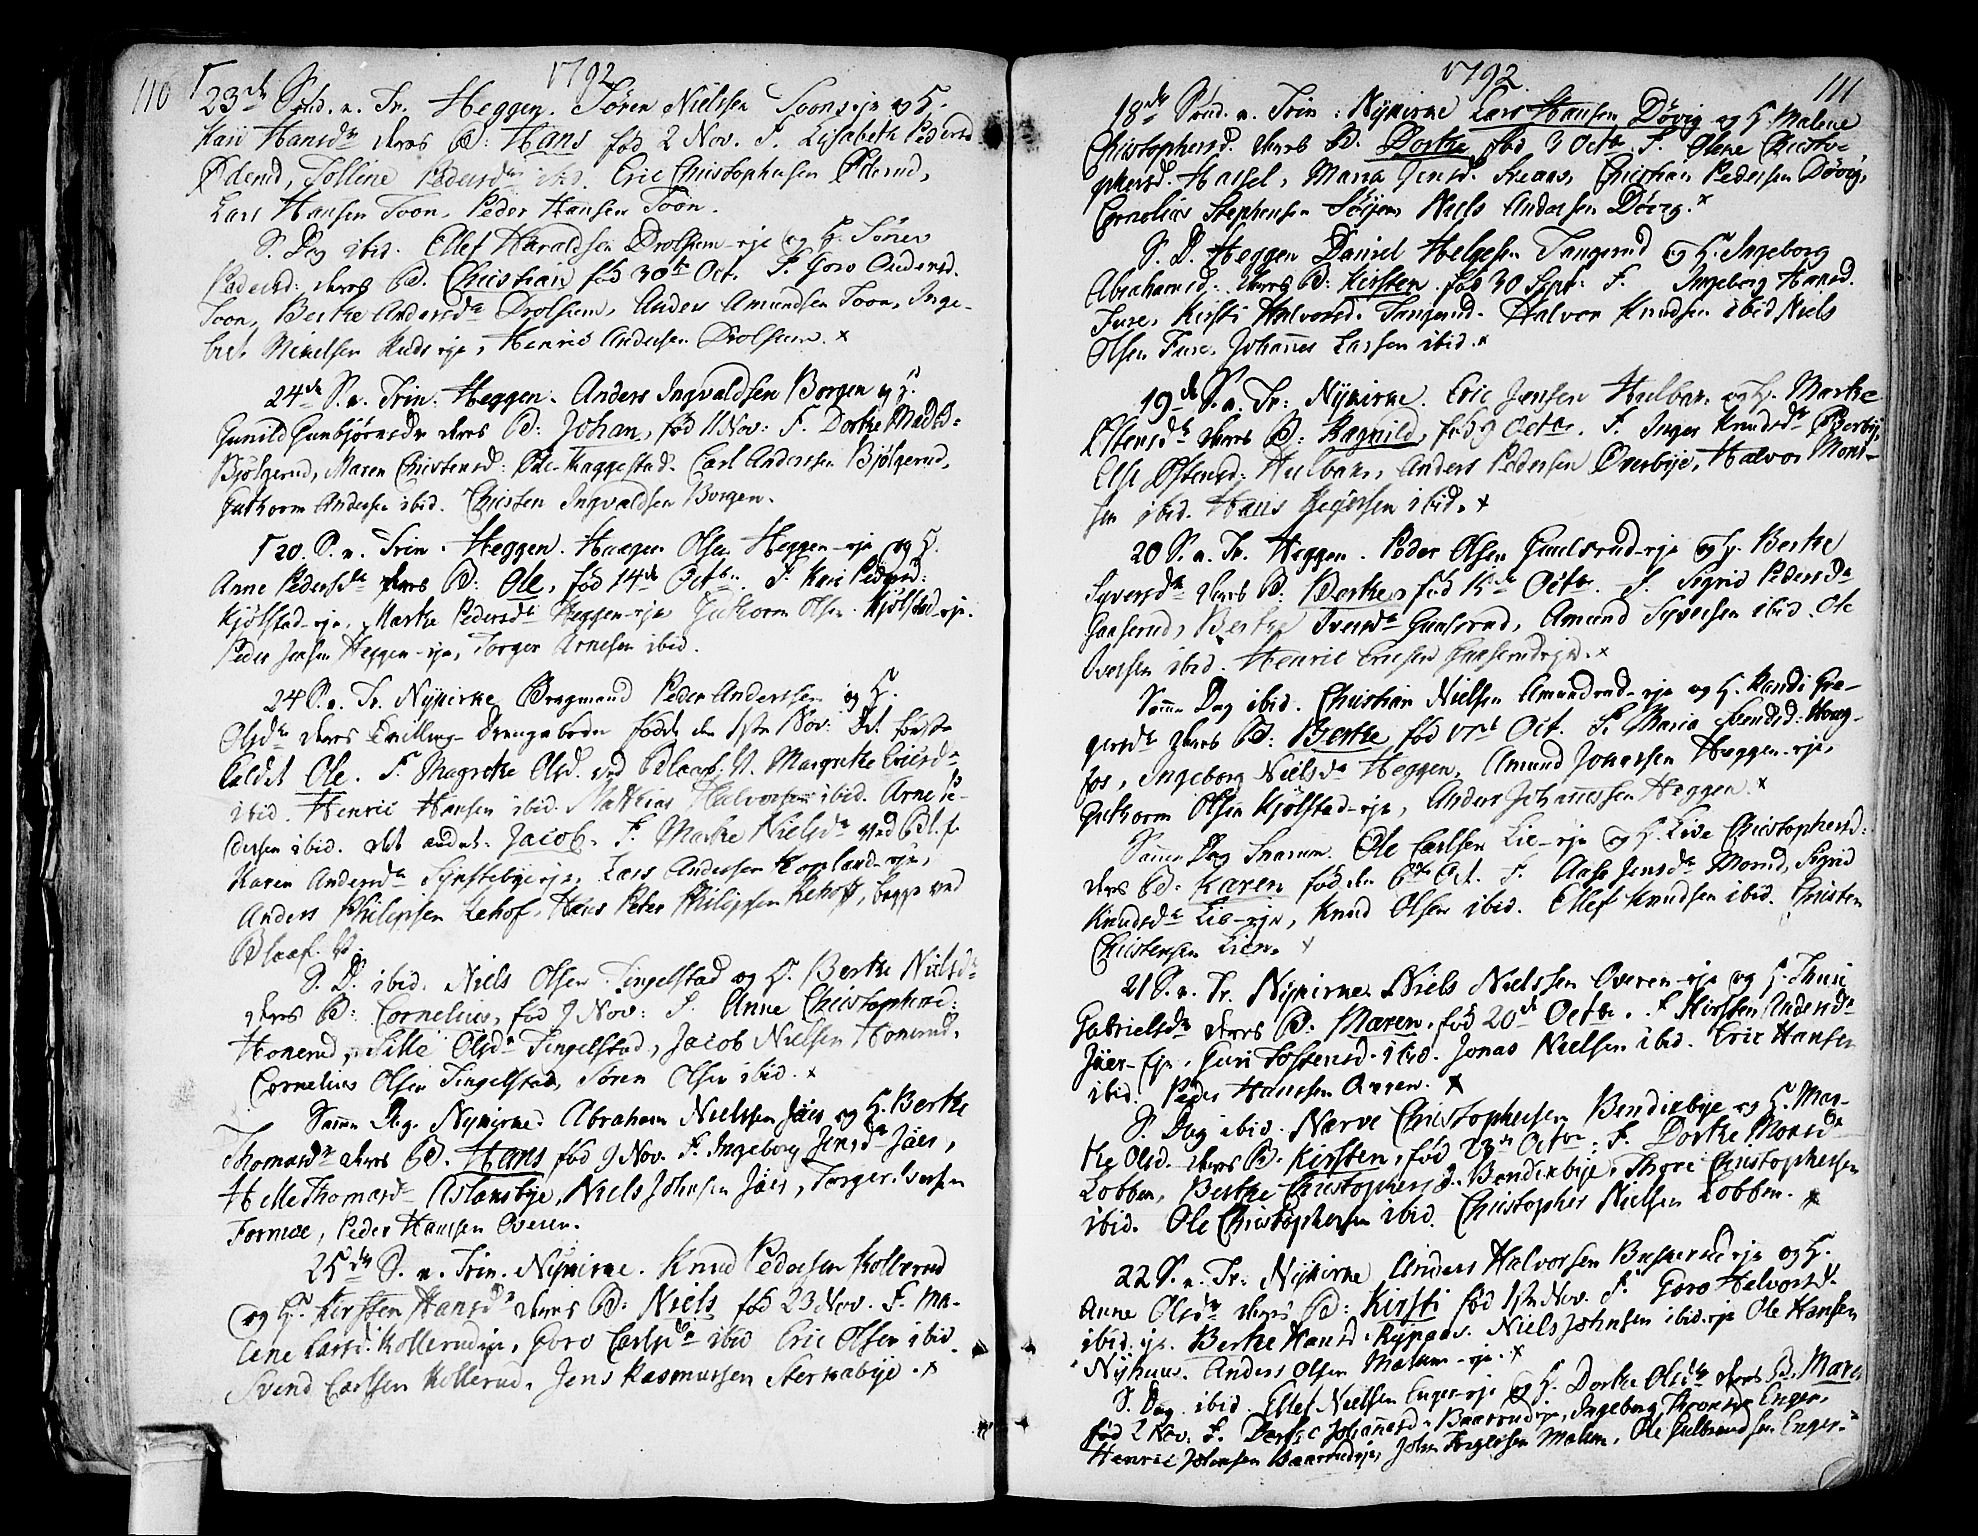 110 1792
23de Sønd. n. Tr. Heggen. Søren Nielsen Toonseje og H.
Kari Hansdr deres B: Hans fød 2 Nov. F. Lisabeth Pedersd
Øderud, Tolline Pedersdr ibid. Eric Christophersen Øderud,
Lars Hansen Toon, Peder Hansen Toon.
S. Dag ibid. Ellef Haraldsen Drolsum-eje og H. Sönev
Pedersd: deres B. Christian fød 30te Oct. F. Goro Andersd.
Toon, Berthe Andersdr Drolsum, Anders Amundsen Toon, Inge-
bret Mikelsen Ruds eje, Henric Andersen Drolsum. x
24de S. n. Trin: Heggen. Anders Ingvaldsen Borgen og H.
Gunild Gunbjørnsdr deres B: Johan, fød 11 Nov: F. Dorthe Madsd.
Bjølgerud, Maren Christensd: Ole Haggestad. Carl Andersen Bjølgerud,
Guthorm Andersen ibid. Christen Ingvaldsen Borgen.
20. S. n. Trin. Heggen. Haagen Olsen Heggen-eje og H.
Anne Pedersdr deres B: Ole, fød 14de Octbr. F. Kari Pedersd:
Kjølstad-eje, Marthe Pedersdr Heggen-eje Guthorm Olsen Kjølstad-eje.
Peder Jensen Heggen-eje, Torger Arnesen ibid.
24 S. n. Tr. Nykirke Bragmand Peder Andersen og H.
Olsdr deres Tvilling Drengebørn fødde den 1ste Nov: Det første
kaldet Ole. F. Magrethe Olsd. ved Blaaf. V. Margrethe Ericsdr
ibid. Henric Hansen ibid. Mathias Halvorsen ibid. Arne Pe-
dersen ibid. det andet: Jacob. F. Marthe Nielsdr ved Bl.f.
Karen Andersdr Lars Andersen Hopland-eje,
Anders Philipsen Lehof, Hans Peter Philipsen Lehoff, begge ved
Blaaf. V.
S. D. ibid. Niels Olsen Tingelstad og H. Berthe Nielsdr
deres B: Cornelius, fød 9 Nov: F. Anne Christophersd:
Honerud, Sille Olsdr Tingelstad, Jacob Nielsen Honerud,
Cornelius Olsen Tingelstad, Søren Olsen ibid. x
Samme Dag. Nykirke: Abraham Nielssen Jaer og H. Berthe
Thomasdr deres B. Hans fød 9 Nov. F. Ingeborg Jensdr Jaer,
Helle Thomasdr Aslaksbye, Niels Johnsen Jaer, Torger Iversen
Formoe, Peder Hansen Overen.
25de S. n. Trin. Nykirke. Knud Pedersen Kollerud
og H. Kirsten Hansdr deres B: Niels fød 23 Nov. F. Ma-
lene Larsd. Kollerudeje, Goro Carlsdr ibid Eric Olsen ibid.
Svend Carlsen Kollerud. Jens Rasmussen Sterkabye. x
1792. 111
18de Sønd. n. Trin: Nykirke Lars Hansen Døvig og H. Malene
Christophersd. deres B. Dorthe fød 3 Octr. F. Olene Christo-
phersd. Hassel, Maria Jensd. Christian Pedersen Døvig,
Cornelius Stephensen Niels Andersen Døvig. x
S. D. Heggen Daniel Helgesen Tangerud og H. Ingeborg
Abrahamsd. deres B: Kirsten. fød 30 Sept: F. Ingeborg Hansd.
Fure, Kirsti Halvorsd. Tangerud. Halvor Knudsen ibid Niels
Olsen Fure, Johannes Larsen ibid. x
19de S. n. Tr: Nykirke. Eric Jensen Hulbak og H. Marthe
Østensdr deres B: Ragnild, fød 9 Octr. F. Inger Knudsdr Overbye,
Else Østensd. Hulbak, Anders Pedersen Overbye, Halvor Mons-
sen ibid. Hans ibid. x
20 S. n. Tr. Heggen. Peder Olsen Gunlsrud-eje og H. Berthe
Syversdr deres B: Berthe, fød 15de Octr. F. Sigrid Pedersdr
Gunserud, Berthe Iversdr Gunlsrud, Amund Syversen ibid. Ole
Iversen ibid. Henric Ericsen Gunserudeje. x
Samme Dag ibid. Christian Nielsen Amundrud-eje og H. Randi Gre-
gersdr deres B: Berthe fød 17de Oct. F. Maria Svendsd: Houg-
fos, Ingeborg Nielsdr Heggen, Amund Johansen Heggen-eje,
Guthorm Olsen Kjølstad-eje, Anders Johannessen Heggen. x
Samme Dag Snarum. Ole Carlsen Lie-eje og H. Live Christophersd:
deres B: Karen fød den 6te Oct. F. Aase Jensdr Morud, Sigrid
Knudsdr Lie-eje, Knud Olsen ibid. Ellef Knudsen ibid. Christen
Christensen Lien. x
21 S. n. Tr. Nykirke. Niels Nielssen Overen-eje og H. Thuri
Gabrielsdr deres B: Maren. fød 20de Octbr. F. Kirsten Andersdr
Jaer-Eje, Guri Tostensd. ibid. Jonas Nielsen ibid. Eric Hansen
ibid. Peder Hansen Overen. x
S. Dag ibid. Narve Christophersen Bendixbye og H. Mar-
the Olsd. deres B. Kirsten, fød 23de Octbr. F. Dorthe Monsdr
Lobben, Berthe Christophersd. Bendixbye, Thore Christophersen
ibid. Ole Christophersen ibid. Christopher Nielsen Lobben. x
22 S. n. Tr: Nykirke Anders Halvorsen Buskerudeje og H.
Anne Olsdr deres B: Kirsti fød 1ste Nov. F. Goro Halvorsd.
ibid. eje. Berthe Hansd. Rypaas. Niels Johnsen ibid.eje Ole Hansen
Nyhuus. Anders Olsen Malum-eje. x
S. Dag ibid. Ellef Nielsen Enger-eje og H. Dorthe Olsdr deres B. Maren
fød 2 Nov: F. Dorthe Johannesd. Baarrudeje, Ingeborg Thronsd Enger,
Henric Johnsen Baarrudeje, John Torgersen Malum, Ole Gulbrandsen Enger.